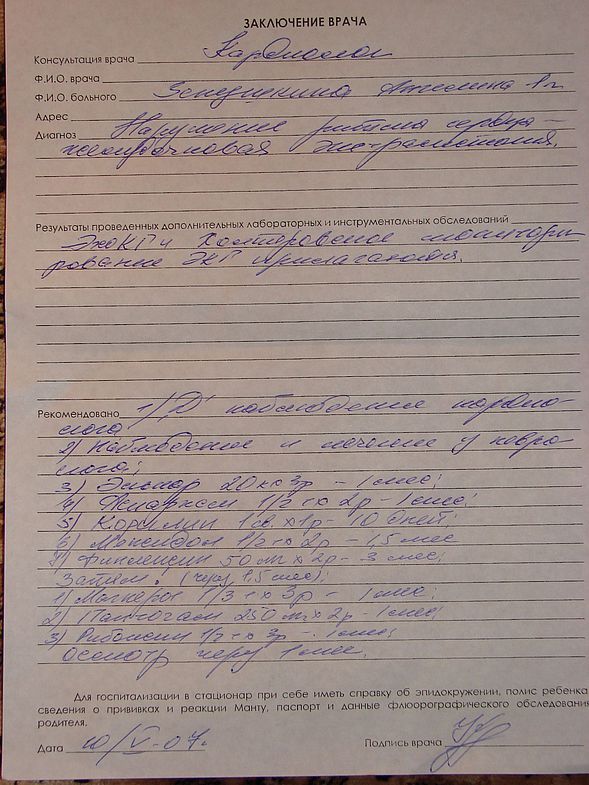 ЗАКЛЮЧЕНИЕ ВРАЧА
Консультация врача Кардиолог
Ф.И.О. врача
Ф.И.О. больного
Адрес
Диагноз Нарушение ритма сердца –
желудочковая экстрасистолия.
Результаты проведенных дополнительных лабораторных и инструментальных обследований
ЭхоКГ и Холтеровское монитори
рование ЭКГ прилагаются.
Рекомендовано 1/ "Д" наблюдение кардио-
лога
2/ Наблюдение и лечение у невро-
лога;
3) Элькар 20 к х 3р – 1 мес;
4) Аспаркам 1/2 т х 2р – 1 мес;
5) 1 св. х 1р – 10 дней;
6) 1/2 т х 2р – 1,5 мес
7) Финлепсин 50 мг х 2р – 3 мес;
Затем: (через 1,5 мес);
1) Магнерот 1/3 т х 3р – 1 мес;
2) Пантогам 250 мг х 2р – 1 мес;
3) Рибоксин 1/2 т х 3р – 1 мес;
Осмотр через 1 мес.
Для госпитализации в стационар при себе иметь справку об эпидокружении, полис ребенка
сведения о прививках и реакции Манту, паспорт и данные флюорографического обследования
родителя.
Дата 10/V-07г. Подпись врача